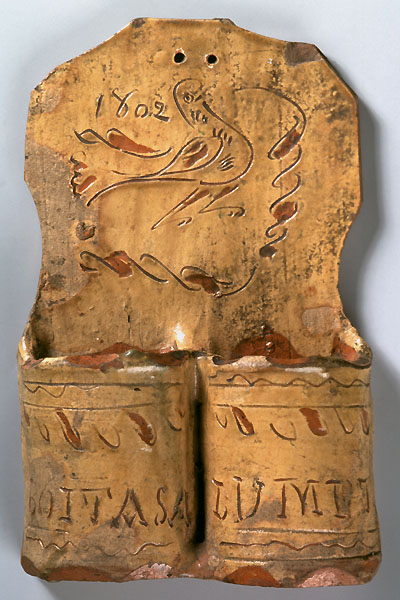 1802
OITASA LUMI